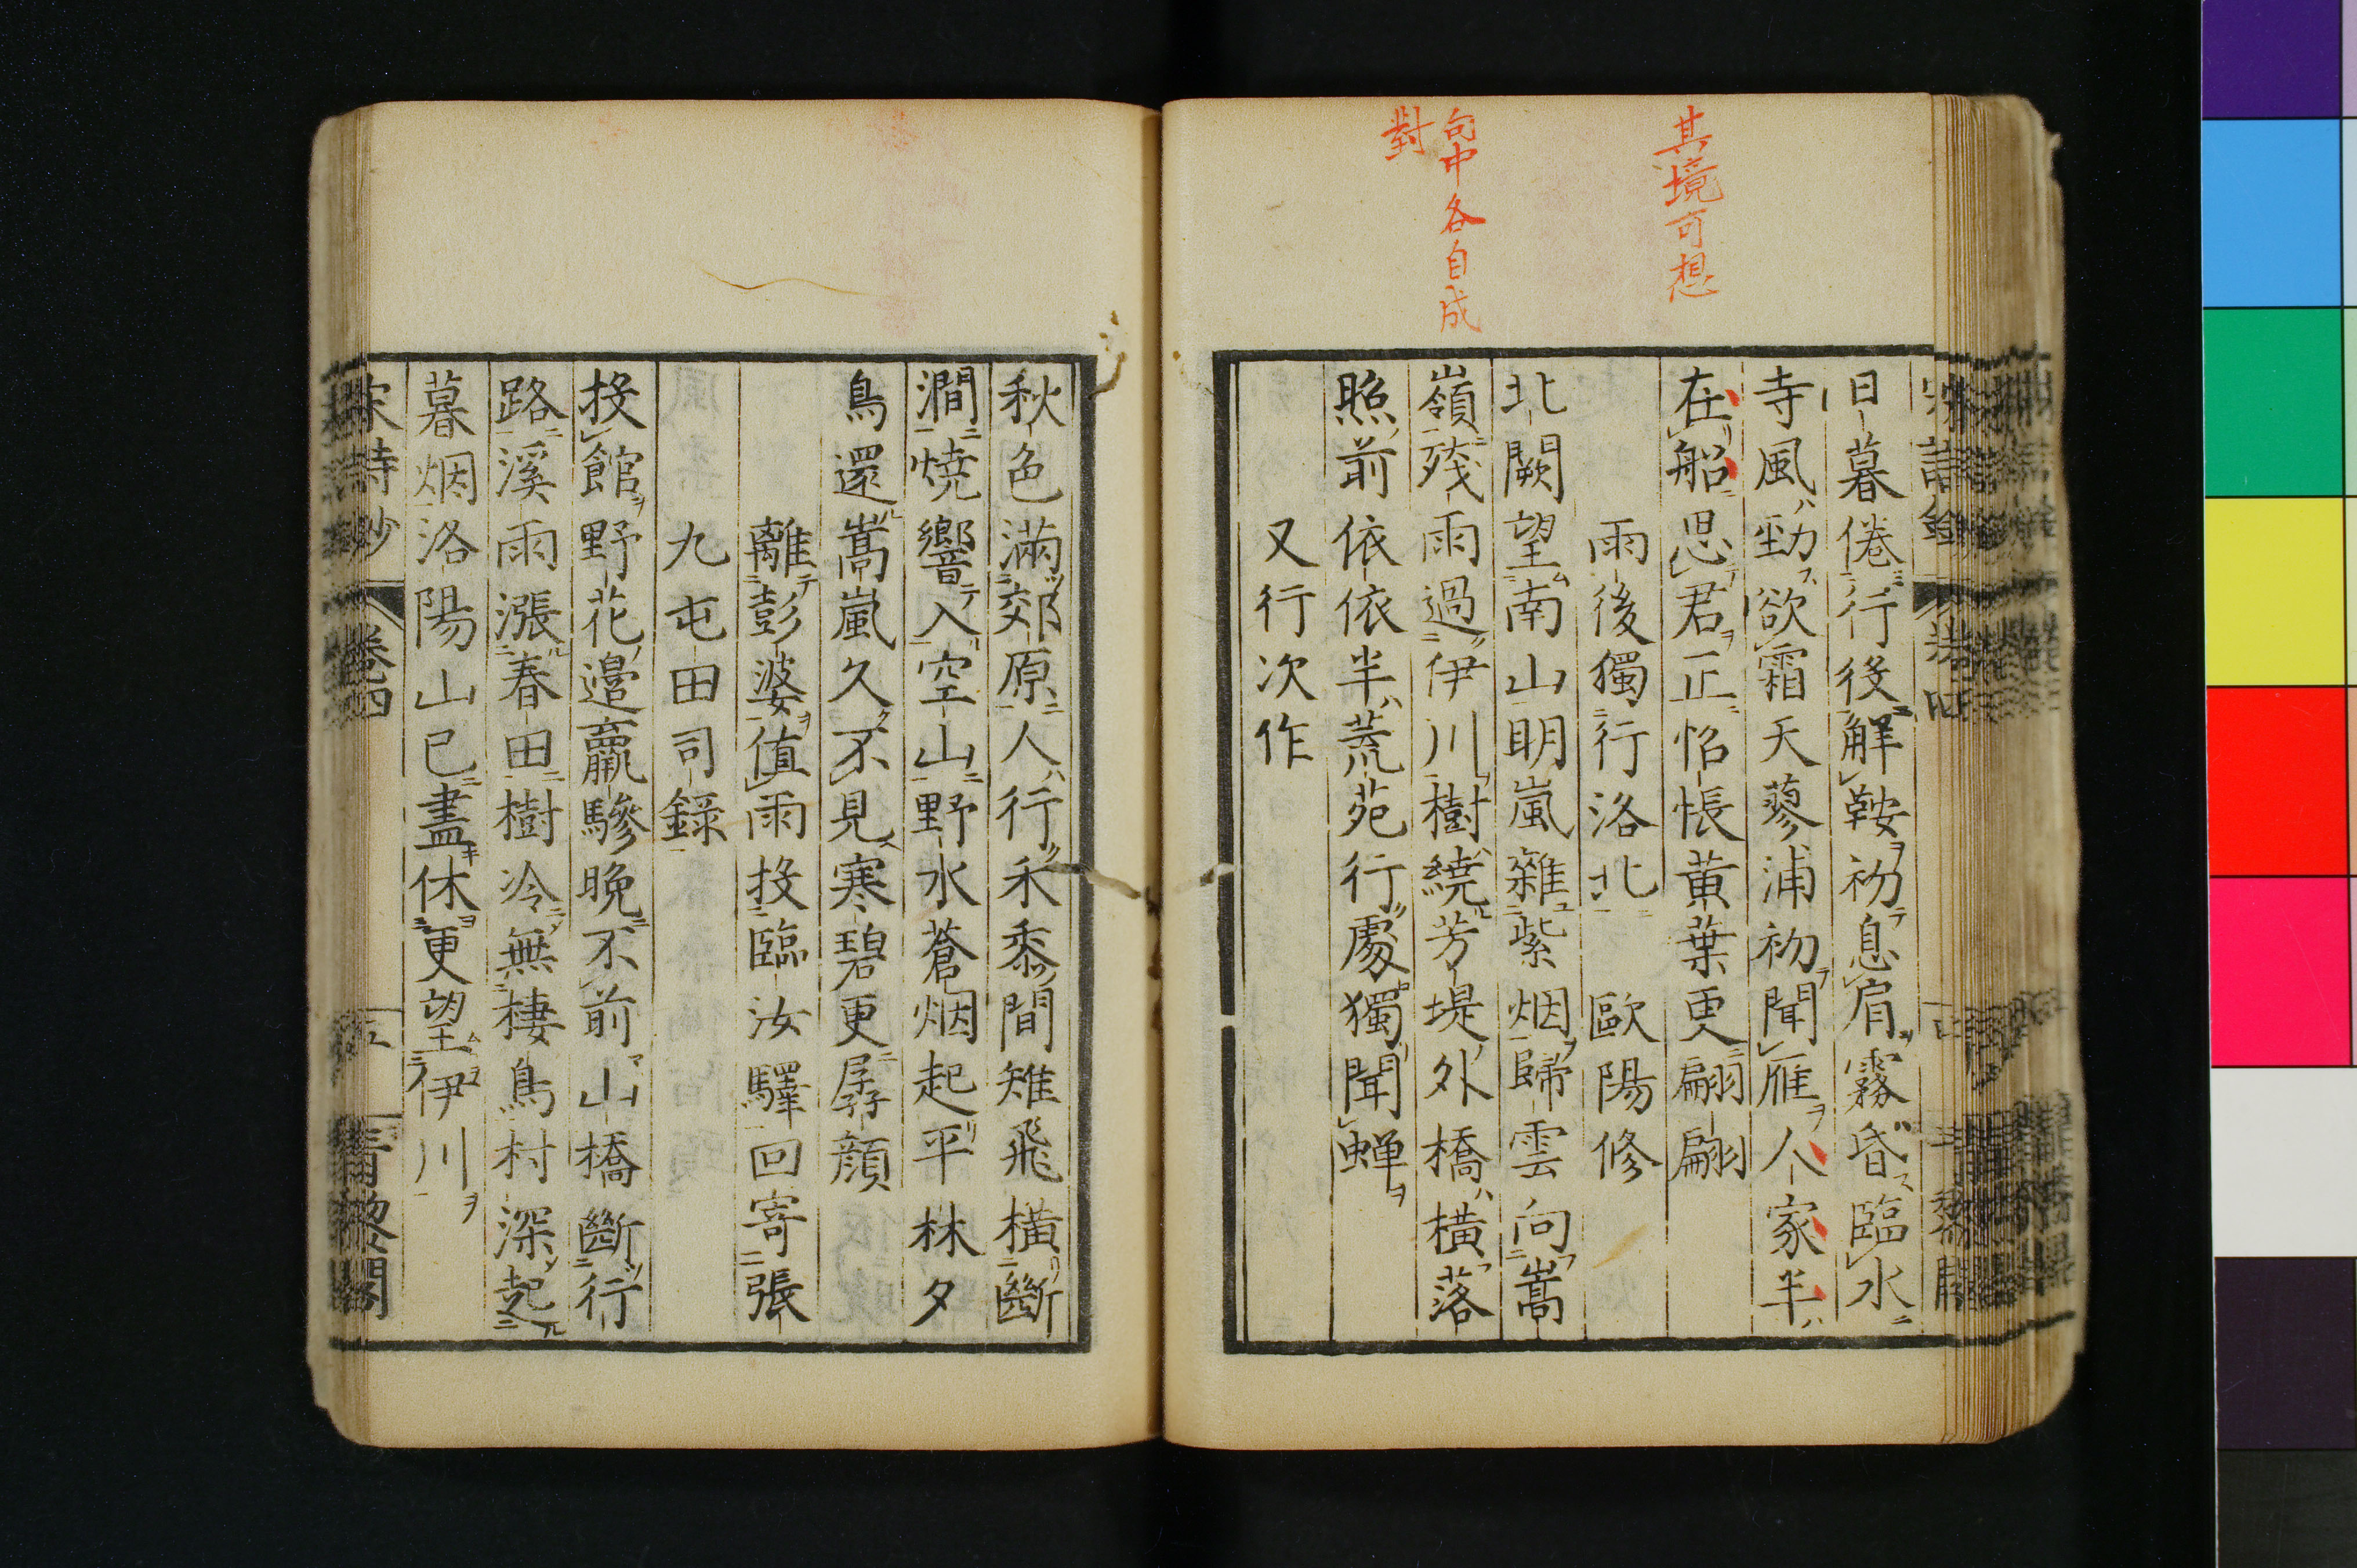 其境可想
句中各自成
對
日暮倦行役解鞍初息肩霧昏臨水
寺風勁欲霜天蓼浦初聞雁人家半
在船思君正怊悵黄葉更翩翩
雨後獨行洛北　歐陽修
北闕望南山明嵐雜紫烟歸雲向嵩
嶺殘雨過伊川樹繞芳堤外橋橫落
照前依依半荒苑行處獨聞蟬
又行次作
秋色滿郊原人行禾黍間雉飛橫斷
澗燒響入空山野水蒼烟起平林夕
鳥還嵩嵐久不見寒碧更孱顔
離彭婆值雨投臨汝驛回寄張
九屯田司錄
投館野花邊羸驂晚不前山橋斷行
路溪雨漲春田樹冷無棲鳥村深起
暮烟洛陽山已盡休更望伊川
宋詩鈔　卷四　青黎閣